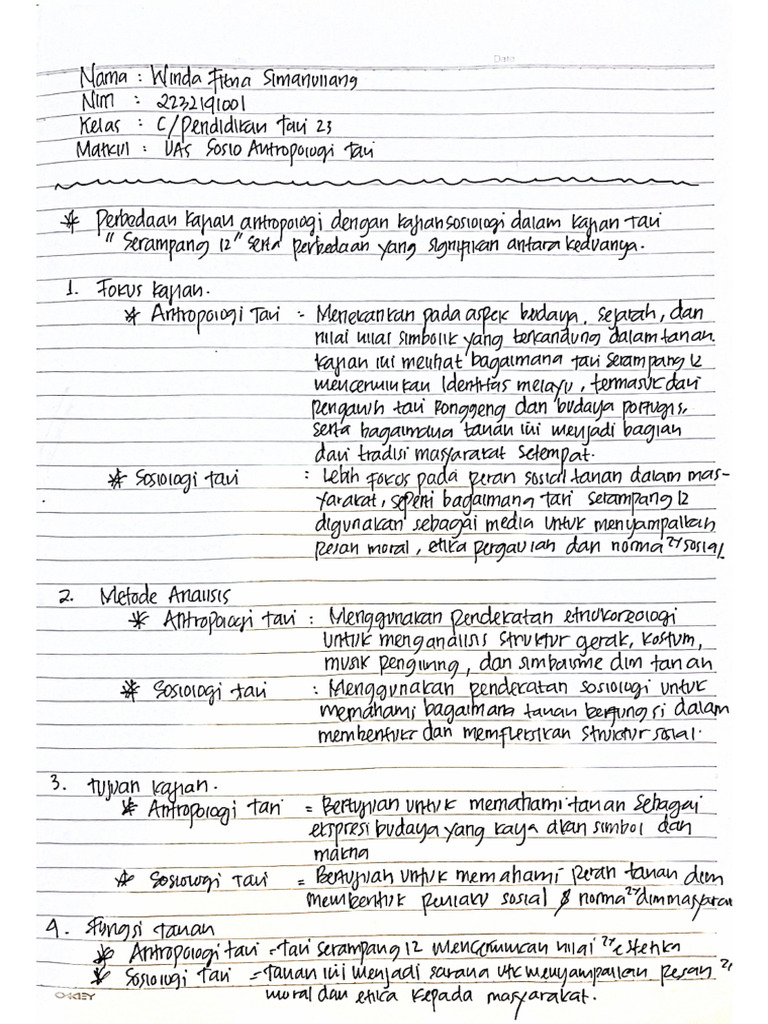 Date
Nama : Winda Fitna Simanullang
Nim : 2232191001
Kelas : C/Pendidikan Tari 23
Matkul : UAS Sosio Antropologi Tari
* Perbedaan kajian antropologi dengan kajian sosiologi dalam kajian Tari
"Serampang 12" serta perbedaan yang signifikan antara keduanya.
1. Fokus kajian.
* Antropologi Tari = Menekankan pada aspek budaya, sejarah, dan
nilai nilai simbolik yang terkandung dalam tarian.
Kajian ini melihat bagaimana tari Serampang 12
mencerminkan Identitas melayu, termasuk dari
pengaruh tari Ronggeng dan budaya portugis,
serta bagaimana tarian ini menjadi bagian
dari tradisi masyarakat setempat.
* Sosiologi tari : Lebih fokos pada peran sosial tarian dalam mas-
yarakat, seperti bagaimana tari Serampang 12
digunakan sebagai media untuk menyampaikan
pesan moral, etika pergaulan dan norma 2x sosial
2. Metode Analisis
* Antropologi tari : Menggunakan pendekatan etnokoreologi
untuk menganalisis struktur gerak, kostum,
musik pengiring, dan simbolisme dlm tarian
* Sosiologi tari : Menggunakan pendekatan sosiologi untuk
memahami bagaimana tarian berfungsi dalam
membentukr dan memfleksikan struktur sosial.
3. Tujuan kajian.
* Antropologi tari = Bertujuan untuk memahami tarian sebagai
ekspresi budaya yang kaya akan simbol dan
makna
* Sosiologi tari = Bertujuan untuk memahami peran tarian dlm
membentuk perilaku sosial & norma 2x dlm masyarakat
4. Fungsi tarian
* Antropologi tari = tari serampang 12 mencerminkan nilai 2x estetika
* Sosiologi tari = tarian ini menjadi sarana utk menyampaikan pesan 2x
moral dan etika kepada masyarakat.
OKEY